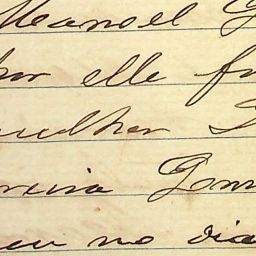 Manoel G
por elle f
mulher
reira Gom
eu no dia